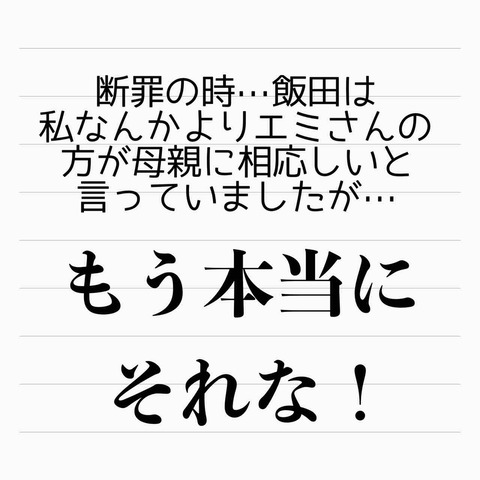 断罪の時…飯田は
私なんかよりエミさんの
方が母親に相応しいと
言っていましたが…
もう本当に
それな！